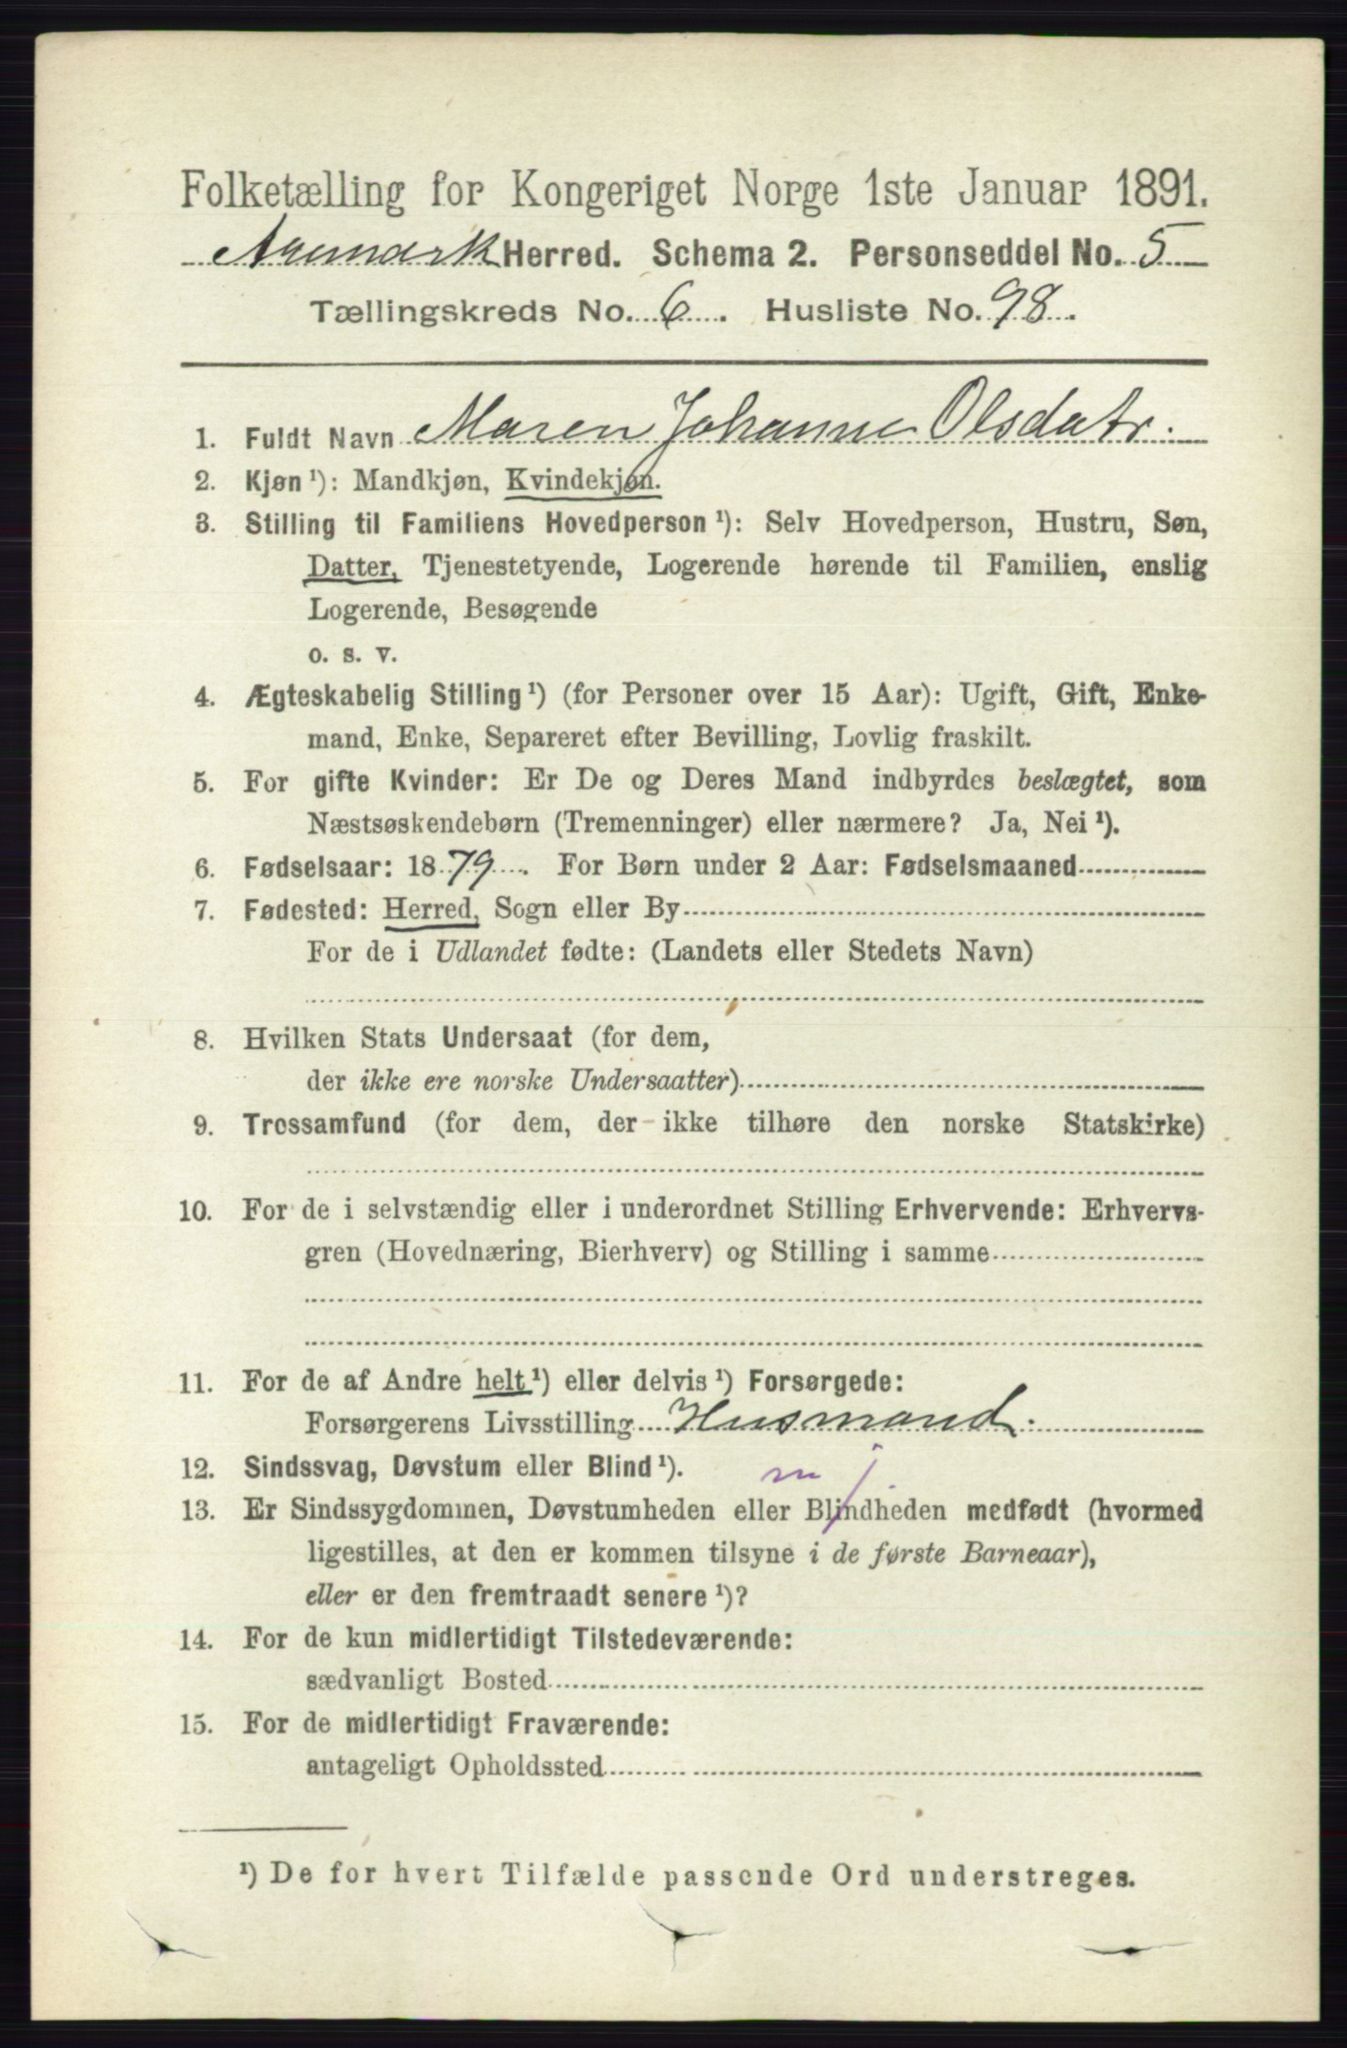 Folketælling for Kongeriget Norge 1ste Januar 1891.
Aremark Herred. Schema 2. Personseddel No. 5
Tællingskreds No. 6. Husliste No. 98.
1. Fuldt Navn Maren Johanne Olsdatr.
2. Kjøn ¹): Mandkjøn, Kvindekjøn.
3. Stilling til Familiens Hovedperson ¹): Selv Hovedperson, Hustru, Søn,
Datter, Tjenestetyende, Logerende hørende til Familien, enslig
Logerende, Besøgende
o. s. v.
4. Ægteskabelig Stilling ¹) (for Personer over 15 Aar): Ugift, Gift, Enke-
mand, Enke, Separeret efter Bevilling, Lovlig fraskilt.
5. For gifte Kvinder: Er De og Deres Mand indbyrdes beslægtet, som
Næstsøskendebørn (Tremenninger) eller nærmere? Ja, Nei ¹).
6. Fødselsaar: 1879. For Børn under 2 Aar: Fødselsmaaned
7. Fødested: Herred, Sogn eller By
For de i Udlandet fødte: (Landets eller Stedets Navn)
8. Hvilken Stats Undersaat (for dem,
der ikke ere norske Undersaatter)
9. Trossamfund (for dem, der ikke tilhøre den norske Statskirke)
10. For de i selvstændig eller i underordnet Stilling Erhvervende: Erhvervs-
gren (Hovednæring, Bierhverv) og Stilling i samme
11. For de af Andre helt ¹) eller delvis ¹) Forsørgede:
Forsørgerens Livsstilling Husmand.
12. Sindssvag, Døvstum eller Blind ¹). nej
13. Er Sindssygdommen, Døvstumheden eller Blindheden medfødt (hvormed
ligestilles, at den er kommen tilsyne i de første Barneaar),
eller er den fremtraadt senere ¹)?
14. For de kun midlertidigt Tilstedeværende:
sædvanligt Bosted
15. For de midlertidigt Fraværende:
antageligt Opholdssted
¹) De for hvert Tilfælde passende Ord understreges.